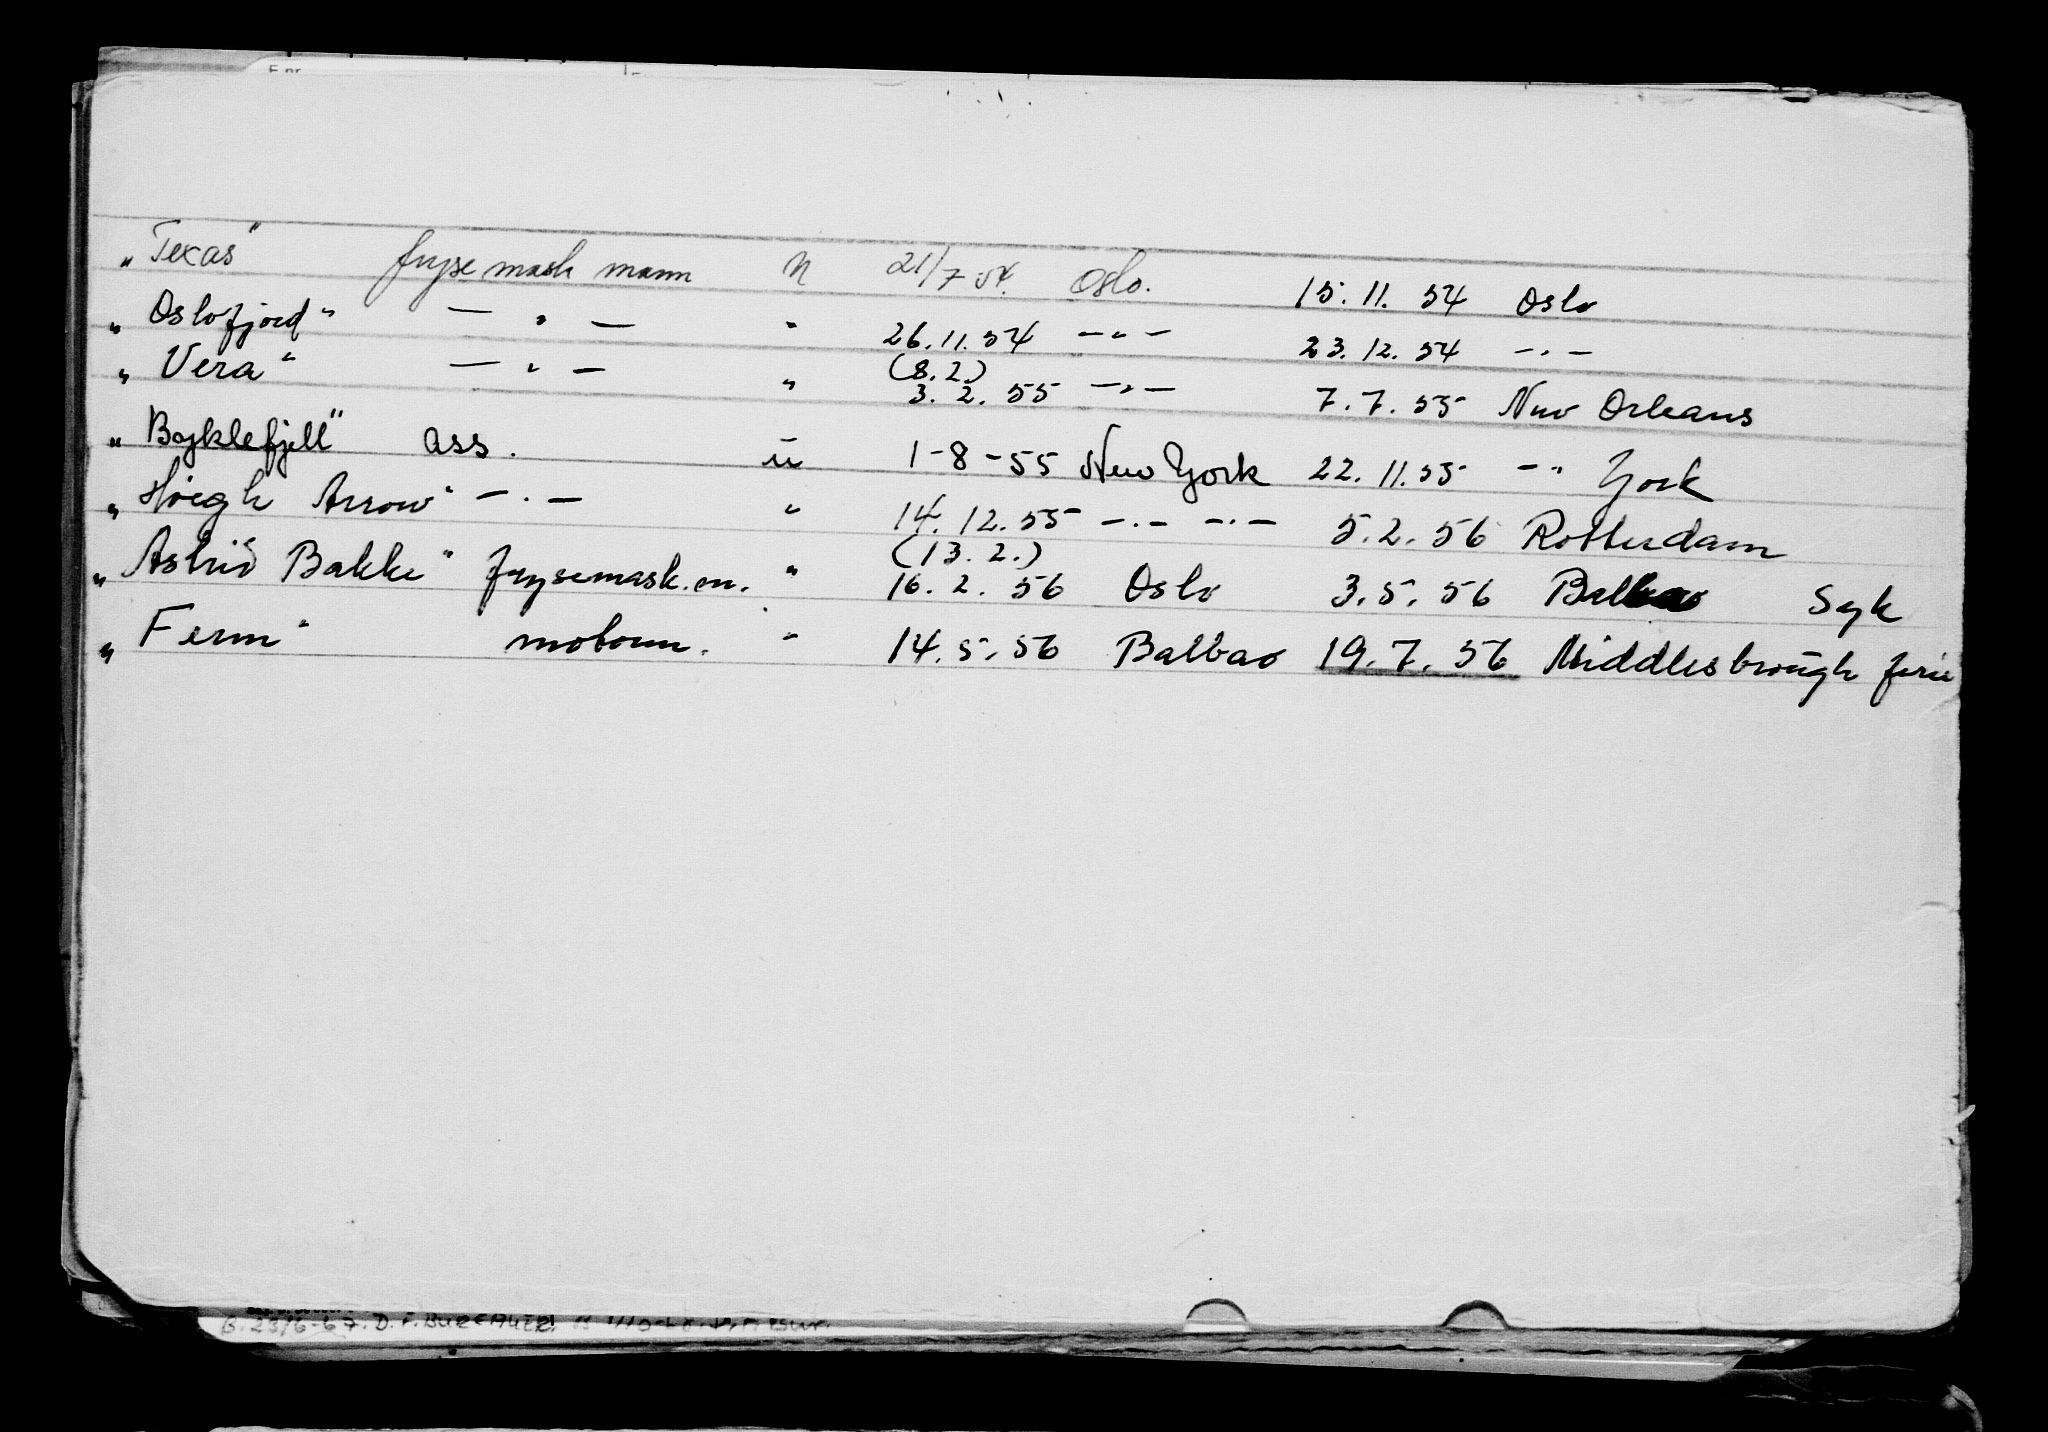 „Texas" frysemaskmann u 21/7 54. Oslo. 15.11.54 Oslo
„Oslofjord" — „ — " 26.11.54 — „ — 23.12.54 — „ —
„Vera" — „ — " (8.2.) 3.2.55 — „ — 7.7.55 New Orleans
„Bøjklefjell" ass. u 1-8-55 New York 22.11.55 — " York
„Høegh Arrow" — „ — " 14.12.55 — „ — — „ — 5.2.56 Rotterdam
„Astrid Bakke" frysemask.m. " (13.2.) 16.2.56 Oslo 3.5.56 Balbao Syk
„Ferm" motorm. " 14.5.56 Balbao 19.7.56 Middlesbrough ferie